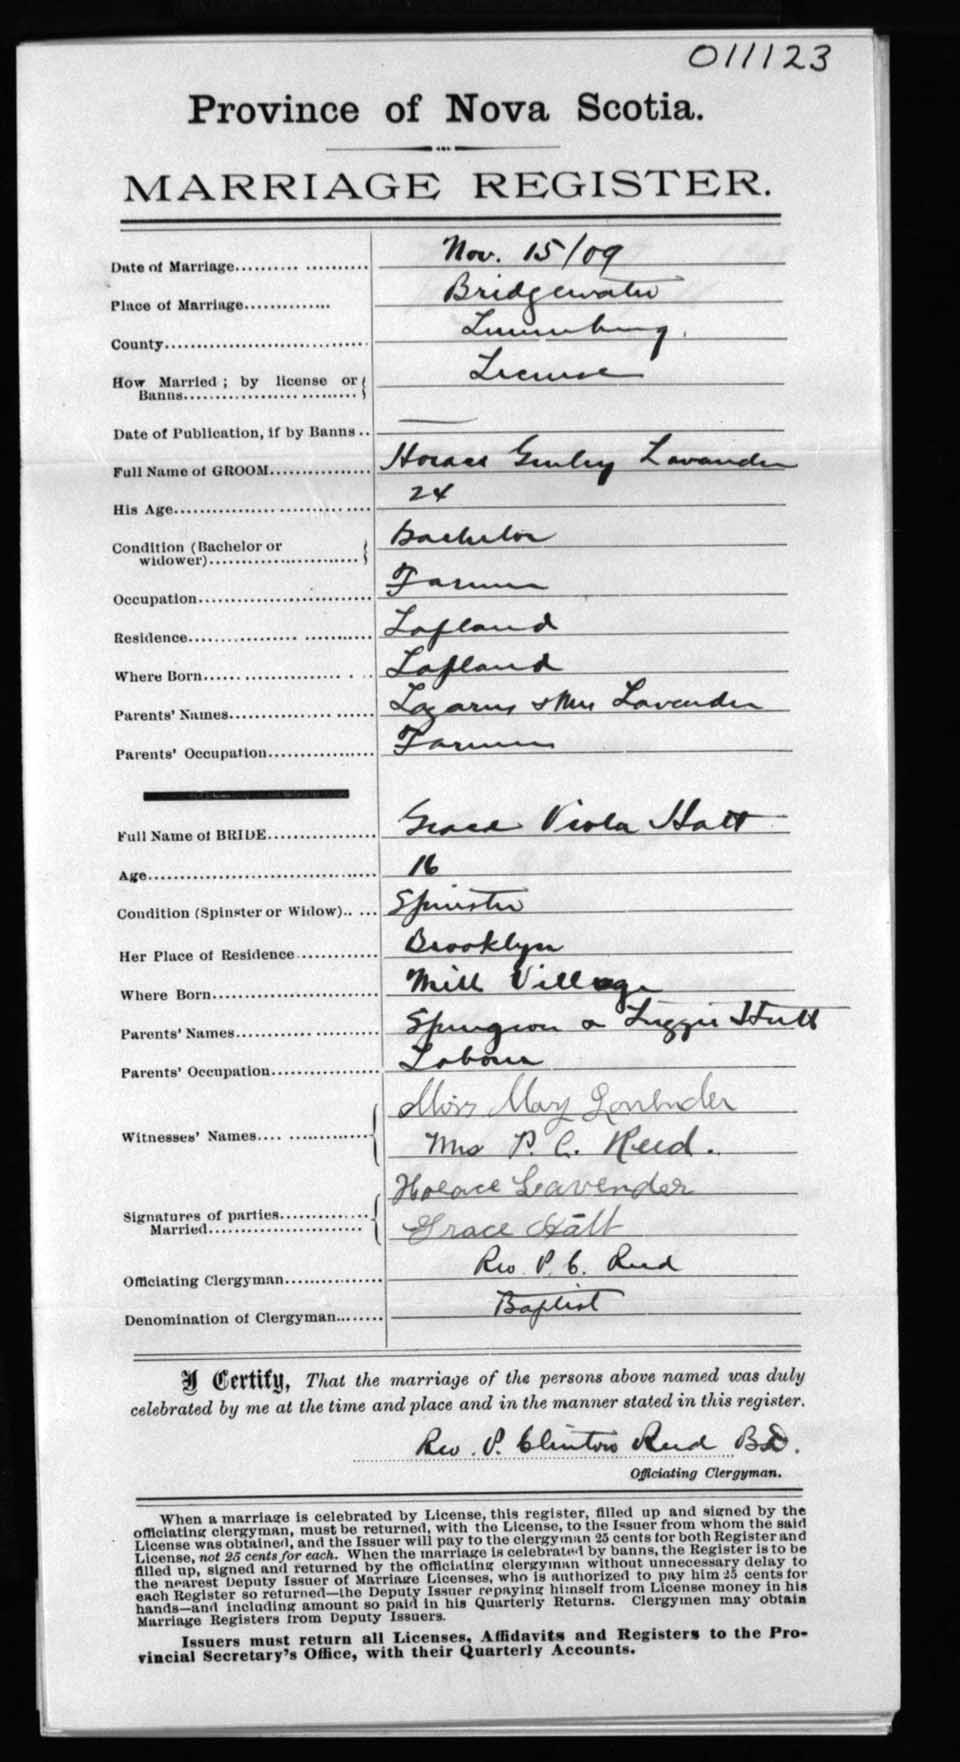 011123
Province of Nova Scotia.
MARRIAGE REGISTER.
Date of Marriage.......... Nov. 15/09
Place of Marriage............. Bridgewater
County.............................. Lunenburg.
How Married; by license or License
Banns.............................
Date of Publication, if by Banns .. —
Full Name of GROOM............... Horace Lavender
His Age............................. 24
Condition (Bachelor or Bachelor
widower)........................
Occupation........................... Farmer
Residence........................... Lapland
Where Born.......................... Lapland
Parents' Names..................... Lazarus & Mrs Lavender
Parents' Occupation................ Farmer
Full Name of BRIDE................ Grace Viola Hatt
Age................................... 16
Condition (Spinster or Widow)..... Spinster
Her Place of Residence............ Brooklyn
Where Born......................... Mill Village
Parents' Names..................... Spurgeon & Lizzie Hatt
Parents' Occupation................ Labour
Witnesses' Names.... ............. Miss May Lavender
Mrs P. C. Reed.
Signatures of parties............. Horace Lavender
Married....................... Grace Hatt
Officiating Clergyman.............. Rev. P. C. Reed
Denomination of Clergyman........ Baptist
I Certify, That the marriage of the persons above named was duly
celebrated by me at the time and place and in the manner stated in this register.
Rev. P. Clinton Reed B.D.
Officiating Clergyman.
When a marriage is celebrated by License, this register, filled up and signed by the
officiating clergyman, must be returned, with the License, to the Issuer from whom the said
License was obtained, and the Issuer will pay to the clergyman 25 cents for both Register and
License, not 25 cents for each. When the marriage is celebrated by banns, the Register is to be
filled up, signed and returned by the officiating clergyman without unnecessary delay to
the nearest Deputy Issuer of Marriage Licenses, who is authorized to pay him 25 cents for
each Register so returned—the Deputy Issuer repaying himself from License money in his
hands—and including amount so paid in his Quarterly Returns. Clergymen may obtain
Marriage Registers from Deputy Issuers.
Issuers must return all Licenses, Affidavits and Registers to the Pro-
vincial Secretary's Office, with their Quarterly Accounts.